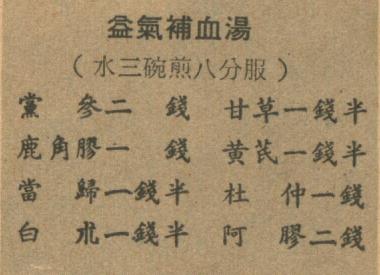 益氣補血湯
(水三碗煎八分服)
黨參二錢 甘草一錢半
鹿角膠一錢 黄芪一錢半
當歸一錢半 杜仲一錢
白朮一錢半 阿膠二錢